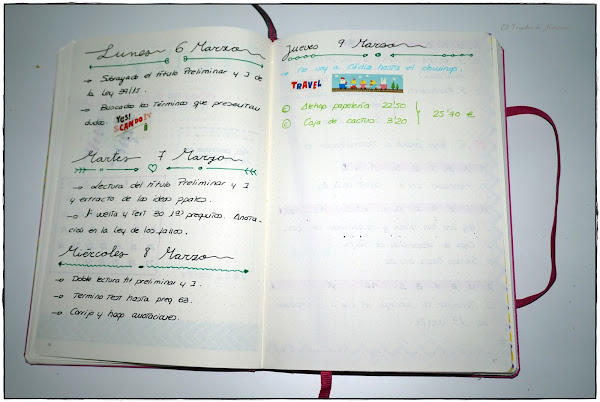 Lunes 6 Marzo
→ Subrayado el título Preliminar y I de
la ley 39/15.
→ Buscados los términos que presentan
dudas.
YES!
I CAN DO IT
Martes 7 Marzo
→ Lectura del título Preliminar y I
y extracto de las ideas ppales.
→ 1ª vuelta y Test 30 preguntas. Anota
ciones en la ley de los fallos.
Miércoles 8 Marzo
→ Doble lectura tít preliminar y I.
→ Termino Test hasta preg 63.
→ Corrijo y hago anotaciones.
Jueves 9 Marzo
→ me voy a Cádiz hasta el domingo.
TRAVEL
papelería 22'50
Caja de cactus 3'20
25'70 €